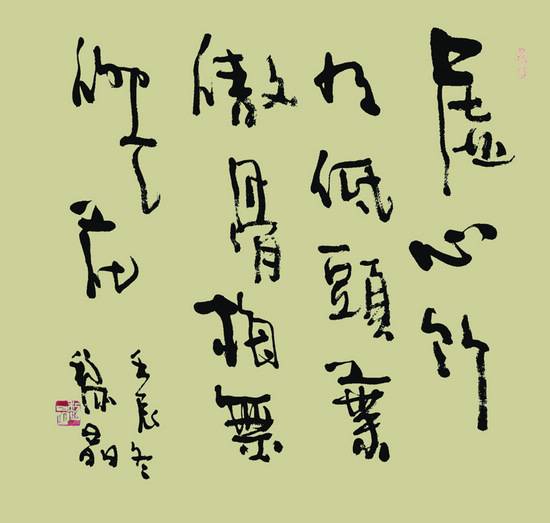 虛心竹
有低頭葉
傲骨梅無
仰面花
壬辰冬